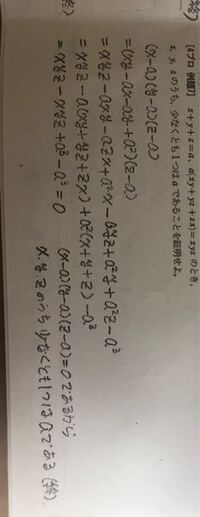 [4プロ 例題7] x+y+z=a, a(xy+yz+zx)=xyz のとき,
x, y, z のうち, 少なくとも1つは a であることを証明せよ。
(x-a)(y-a)(z-a)
=(xy-ax-ay+a²)(z-a)
=xyz-axy-azx+a²x-ayz+a²y+a²z-a³
=xyz-a(xy+yz+zx)+a²(x+y+z)-a³
=xyz-xyz+a³-a³=0
(x-a)(y-a)(z-a)=0であるから
x.y.zのうち少なくとも1つはaである(終)